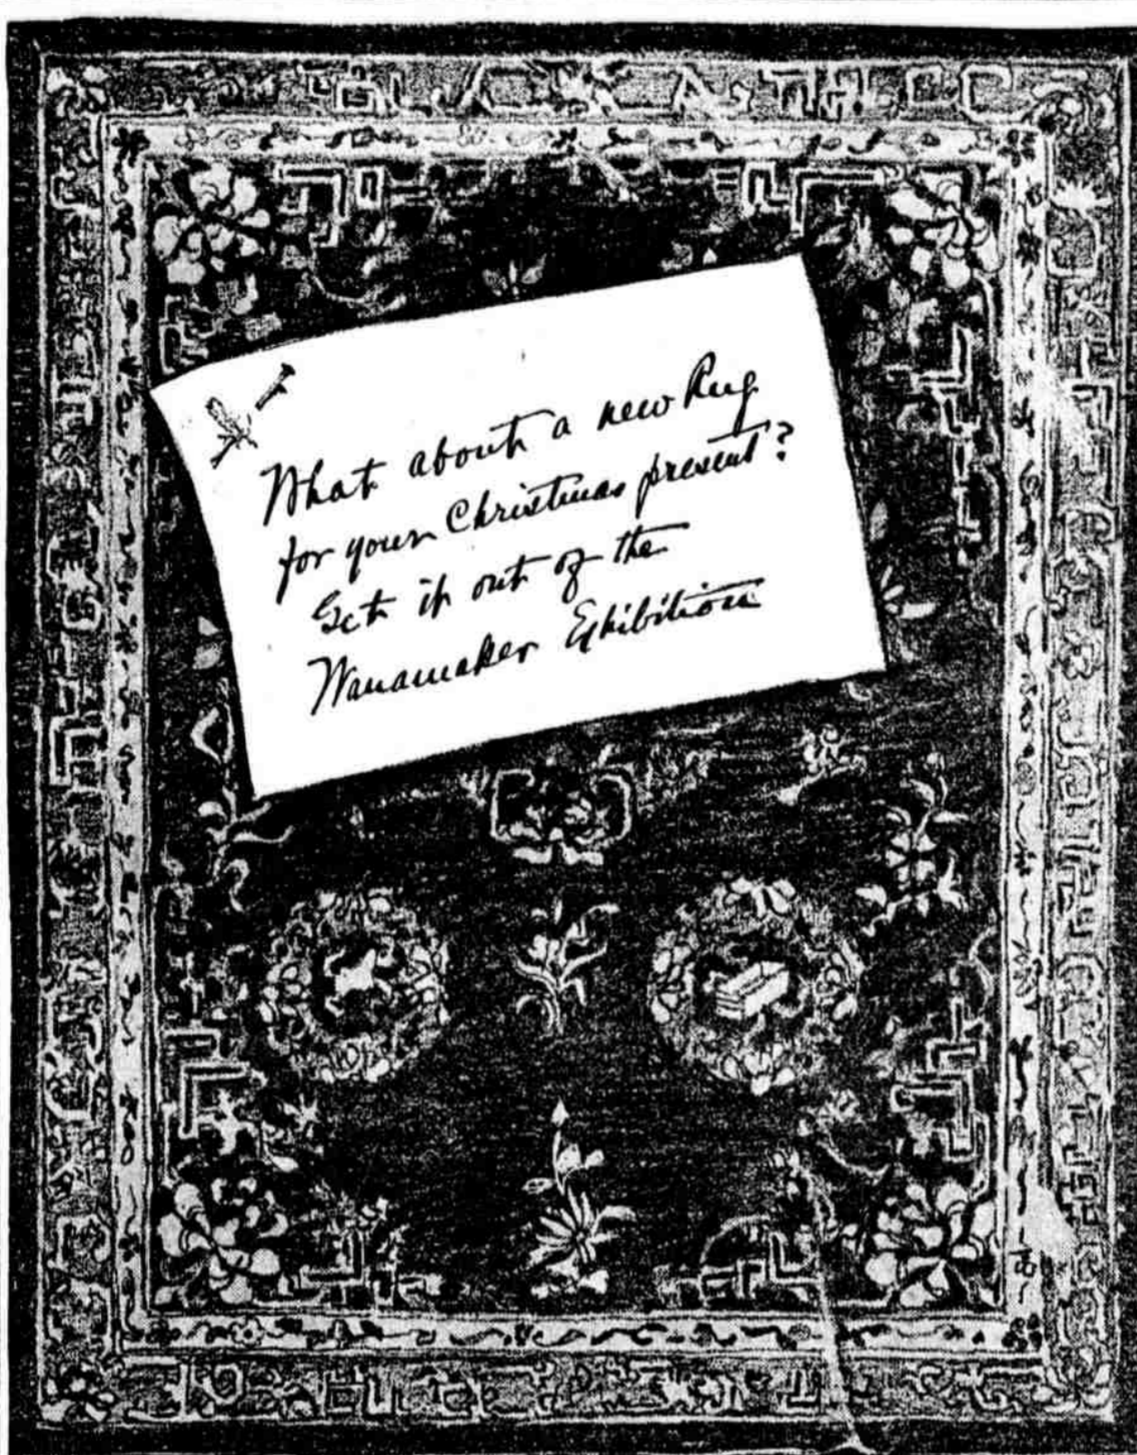 What about a new Rug
for your Christmas present?
Get it out of the
Wanamaker Exhibition